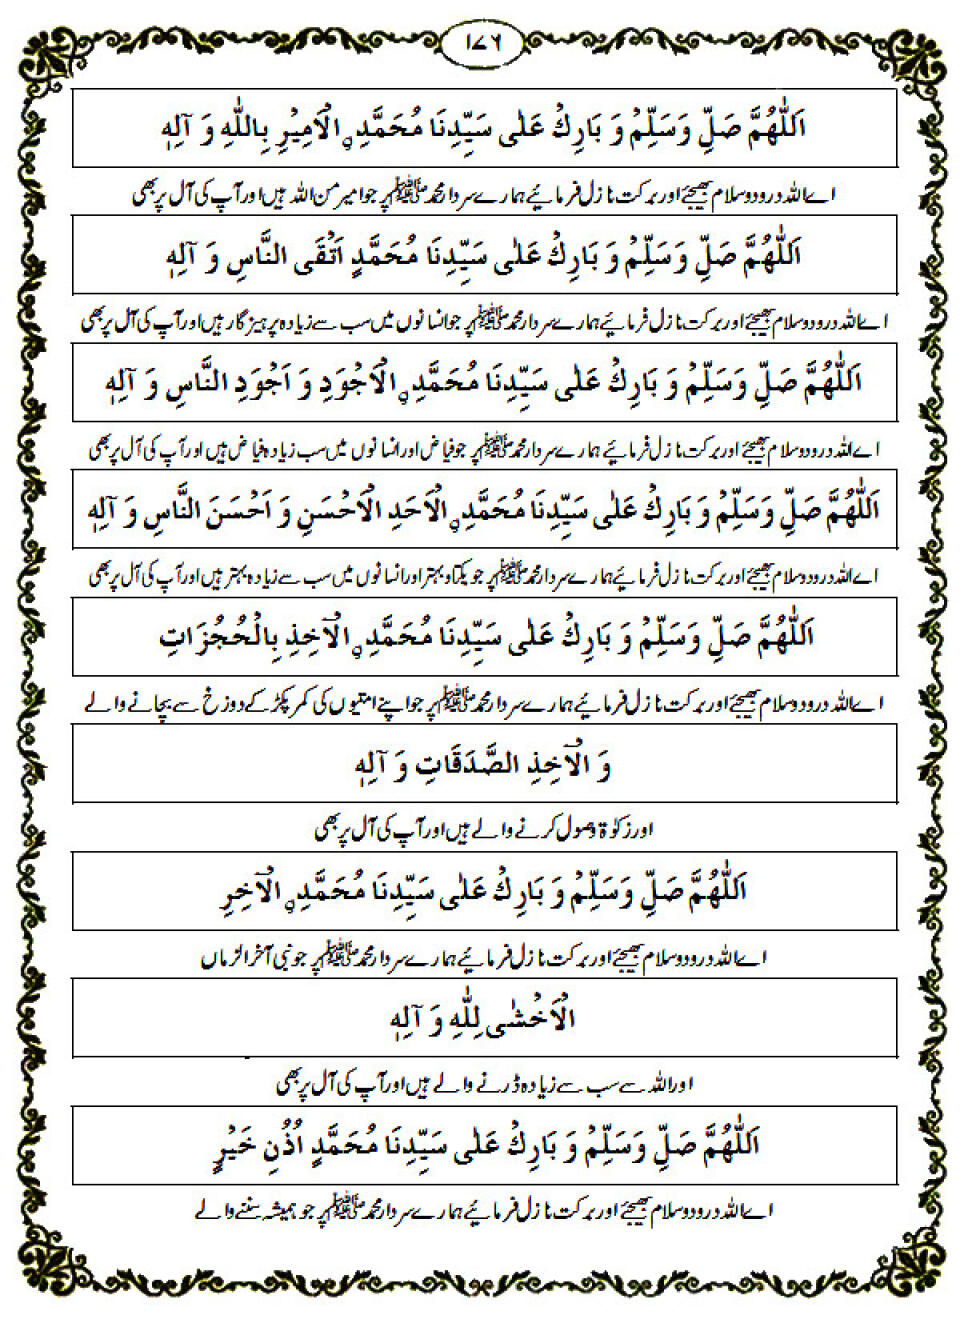 ۱۷۶
اَللّٰهُمَّ صَلِّ وَسَلِّمْ وَ بَارِكْ عَلٰى سَيِّدِنَا مُحَمَّدِ ۣالْاَمِيْرِ بِاللّٰهِ وَ آلِهٖ
اے اللہ درود و سلام بھیجئے اور برکت نازل فرمائیے ہمارے سردار محمد ﷺ پر جو امیر من اللہ ہیں اور آپ کی آل پر بھی
اَللّٰهُمَّ صَلِّ وَسَلِّمْ وَ بَارِكْ عَلٰى سَيِّدِنَا مُحَمَّدٍ اَتْقَى النَّاسِ وَ آلِهٖ
اے اللہ درود و سلام بھیجئے اور برکت نازل فرمائیے ہمارے سردار محمد ﷺ پر جو انسانوں میں سب سے زیادہ پرہیز گار ہیں اور آپ کی آل پر بھی
اَللّٰهُمَّ صَلِّ وَسَلِّمْ وَ بَارِكْ عَلٰى سَيِّدِنَا مُحَمَّدِ ۣالْاَجْوَدِ وَ اَجْوَدِ النَّاسِ وَ آلِهٖ
اے اللہ درود و سلام بھیجئے اور برکت نازل فرمائیے ہمارے سردار محمد ﷺ پر جو فیاض اور انسانوں میں سب زیادہ فیاض ہیں اور آپ کی آل پر بھی
اَللّٰهُمَّ صَلِّ وَسَلِّمْ وَ بَارِكْ عَلٰى سَيِّدِنَا مُحَمَّدِ ۣالْاَحَدِ الْاَحْسَنِ وَ اَحْسَنَ النَّاسِ وَ آلِهٖ
اے اللہ درود و سلام بھیجئے اور برکت نازل فرمائیے ہمارے سردار محمد ﷺ پر جو یکتا و بہتر اور انسانوں میں سب سے زیادہ بہتر ہیں اور آپ کی آل پر بھی
اَللّٰهُمَّ صَلِّ وَسَلِّمْ وَ بَارِكْ عَلٰى سَيِّدِنَا مُحَمَّدِ ۣالْآخِذِ بِالْحُجُزَاتِ
اے اللہ درود و سلام بھیجئے اور برکت نازل فرمائیے ہمارے سردار محمد ﷺ پر جو اپنے امتیوں کی کمر پکڑ کے دوزخ سے بچانے والے
وَ الْآخِذِ الصَّدَقَاتِ وَ آلِهٖ
اور زکوٰۃ وصول کرنے والے ہیں اور آپ کی آل پر بھی
اَللّٰهُمَّ صَلِّ وَسَلِّمْ وَ بَارِكْ عَلٰى سَيِّدِنَا مُحَمَّدِ ۣالْآخِرِ
اے اللہ درود و سلام بھیجئے اور برکت نازل فرمائیے ہمارے سردار محمد ﷺ پر جو نبی آخر الزماں
الْاَخْشٰى لِلّٰهِ وَ آلِهٖ
اور اللہ سے سب سے زیادہ ڈرنے والے ہیں اور آپ کی آل پر بھی
اَللّٰهُمَّ صَلِّ وَسَلِّمْ وَ بَارِكْ عَلٰى سَيِّدِنَا مُحَمَّدٍ اُذُنِ خَيْرٍ
اے اللہ درود و سلام بھیجئے اور برکت نازل فرمائیے ہمارے سردار محمد ﷺ پر جو ہمیشہ سننے والے